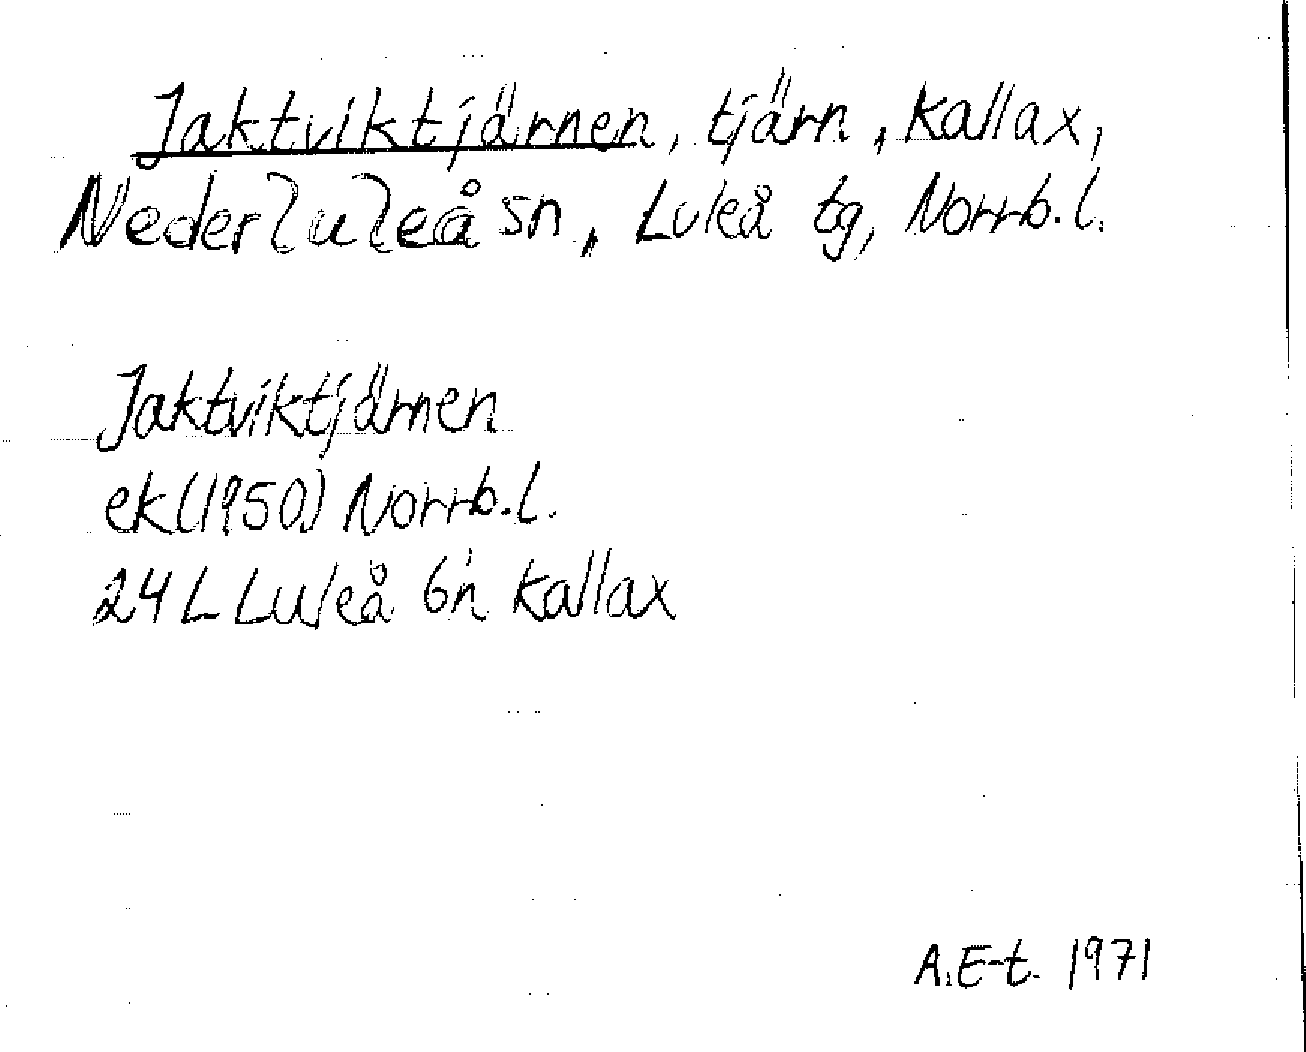 Jaktviktjärnen, tjärn, Kallax,
Nederluleå sn, Luleå tg, Norrb.l.
Jaktviktjärnen
ek (1950) Norrb.l.
24 L Luleå 6 n Kallax
A.E-t. 1971